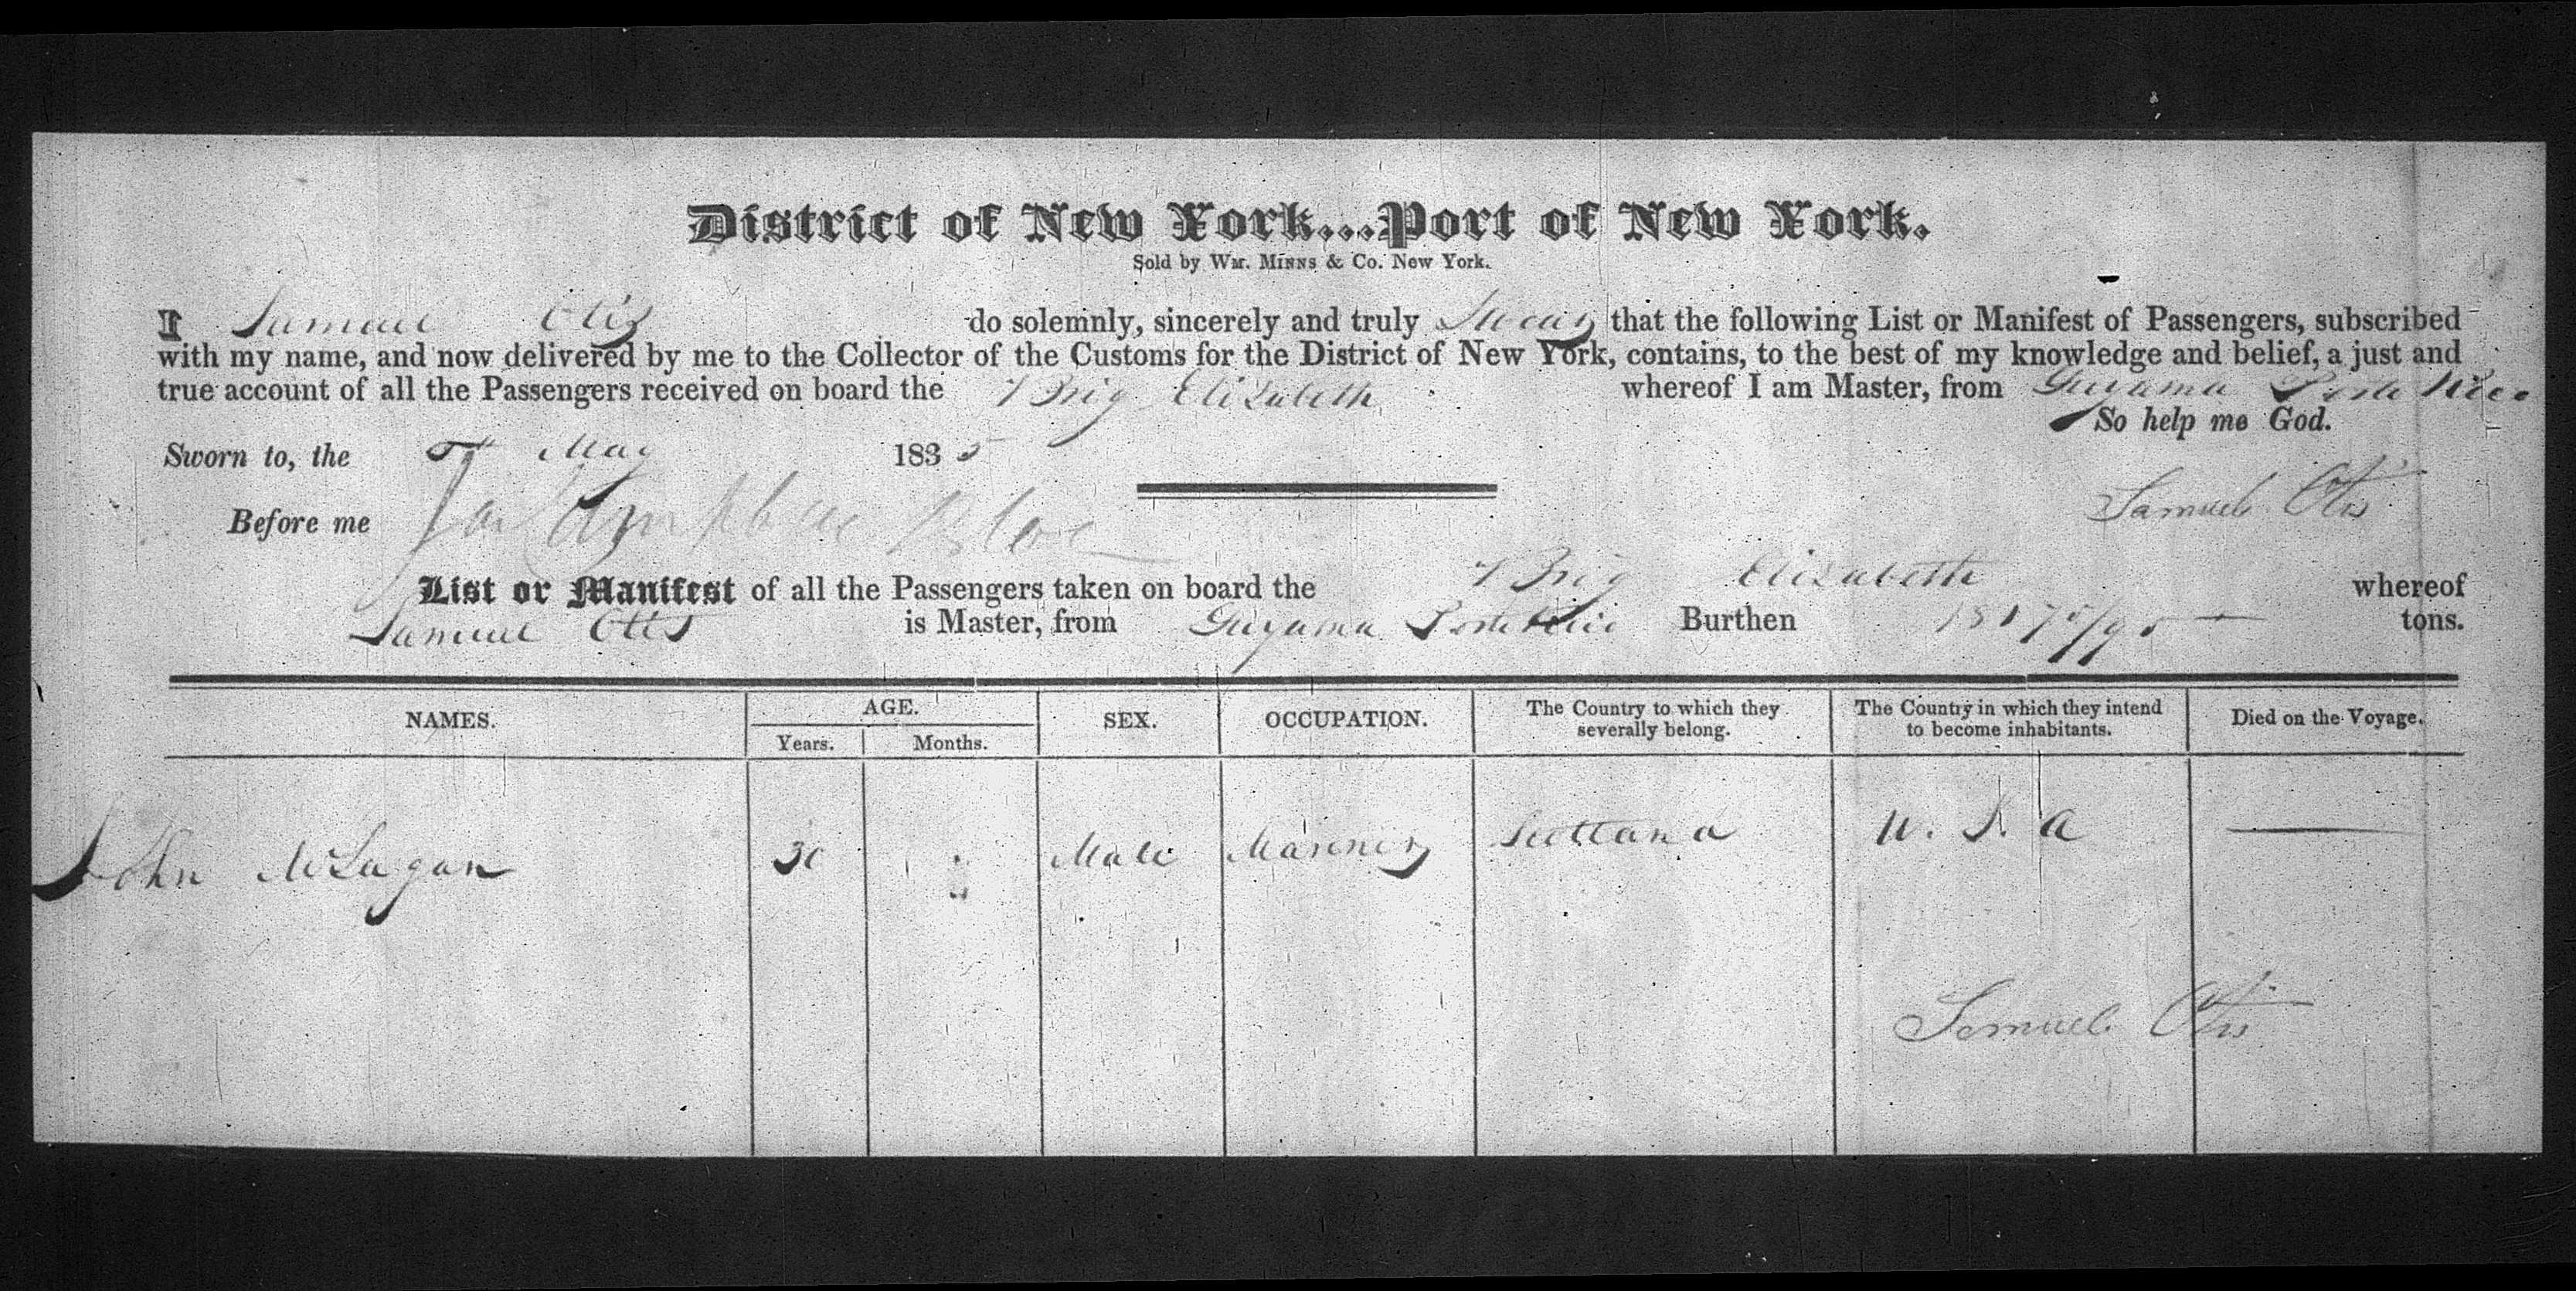 District of New York...Port of New York.
Sold by Wm. Minns & Co. New York.
I Samuel Otis do solemnly, sincerely and truly Swear that the following List or Manifest of Passengers, subscribed
with my name, and now delivered by me to the Collector of the Customs for the District of New York, contains, to the best of my knowledge and belief, a just and
true account of all the Passengers received on board the Brig Elizabeth whereof I am Master, from Guyama Porto Rico
So help me God.
Sworn to, the May 1835
Samuel Otis
Before me
List or Manifest of all the Passengers taken on board the Brig Elizabeth whereof
Samuel Otis is Master, from Guyama Porto Rico Burthen tons.
NAMES. AGE. SEX. OCCUPATION. The Country to which they severally belong. The Country in which they intend to become inhabitants. Died on the Voyage.
Years. Months.
John McLagan 30 Male Mariner Scotland U. S. A
Samuel Otis